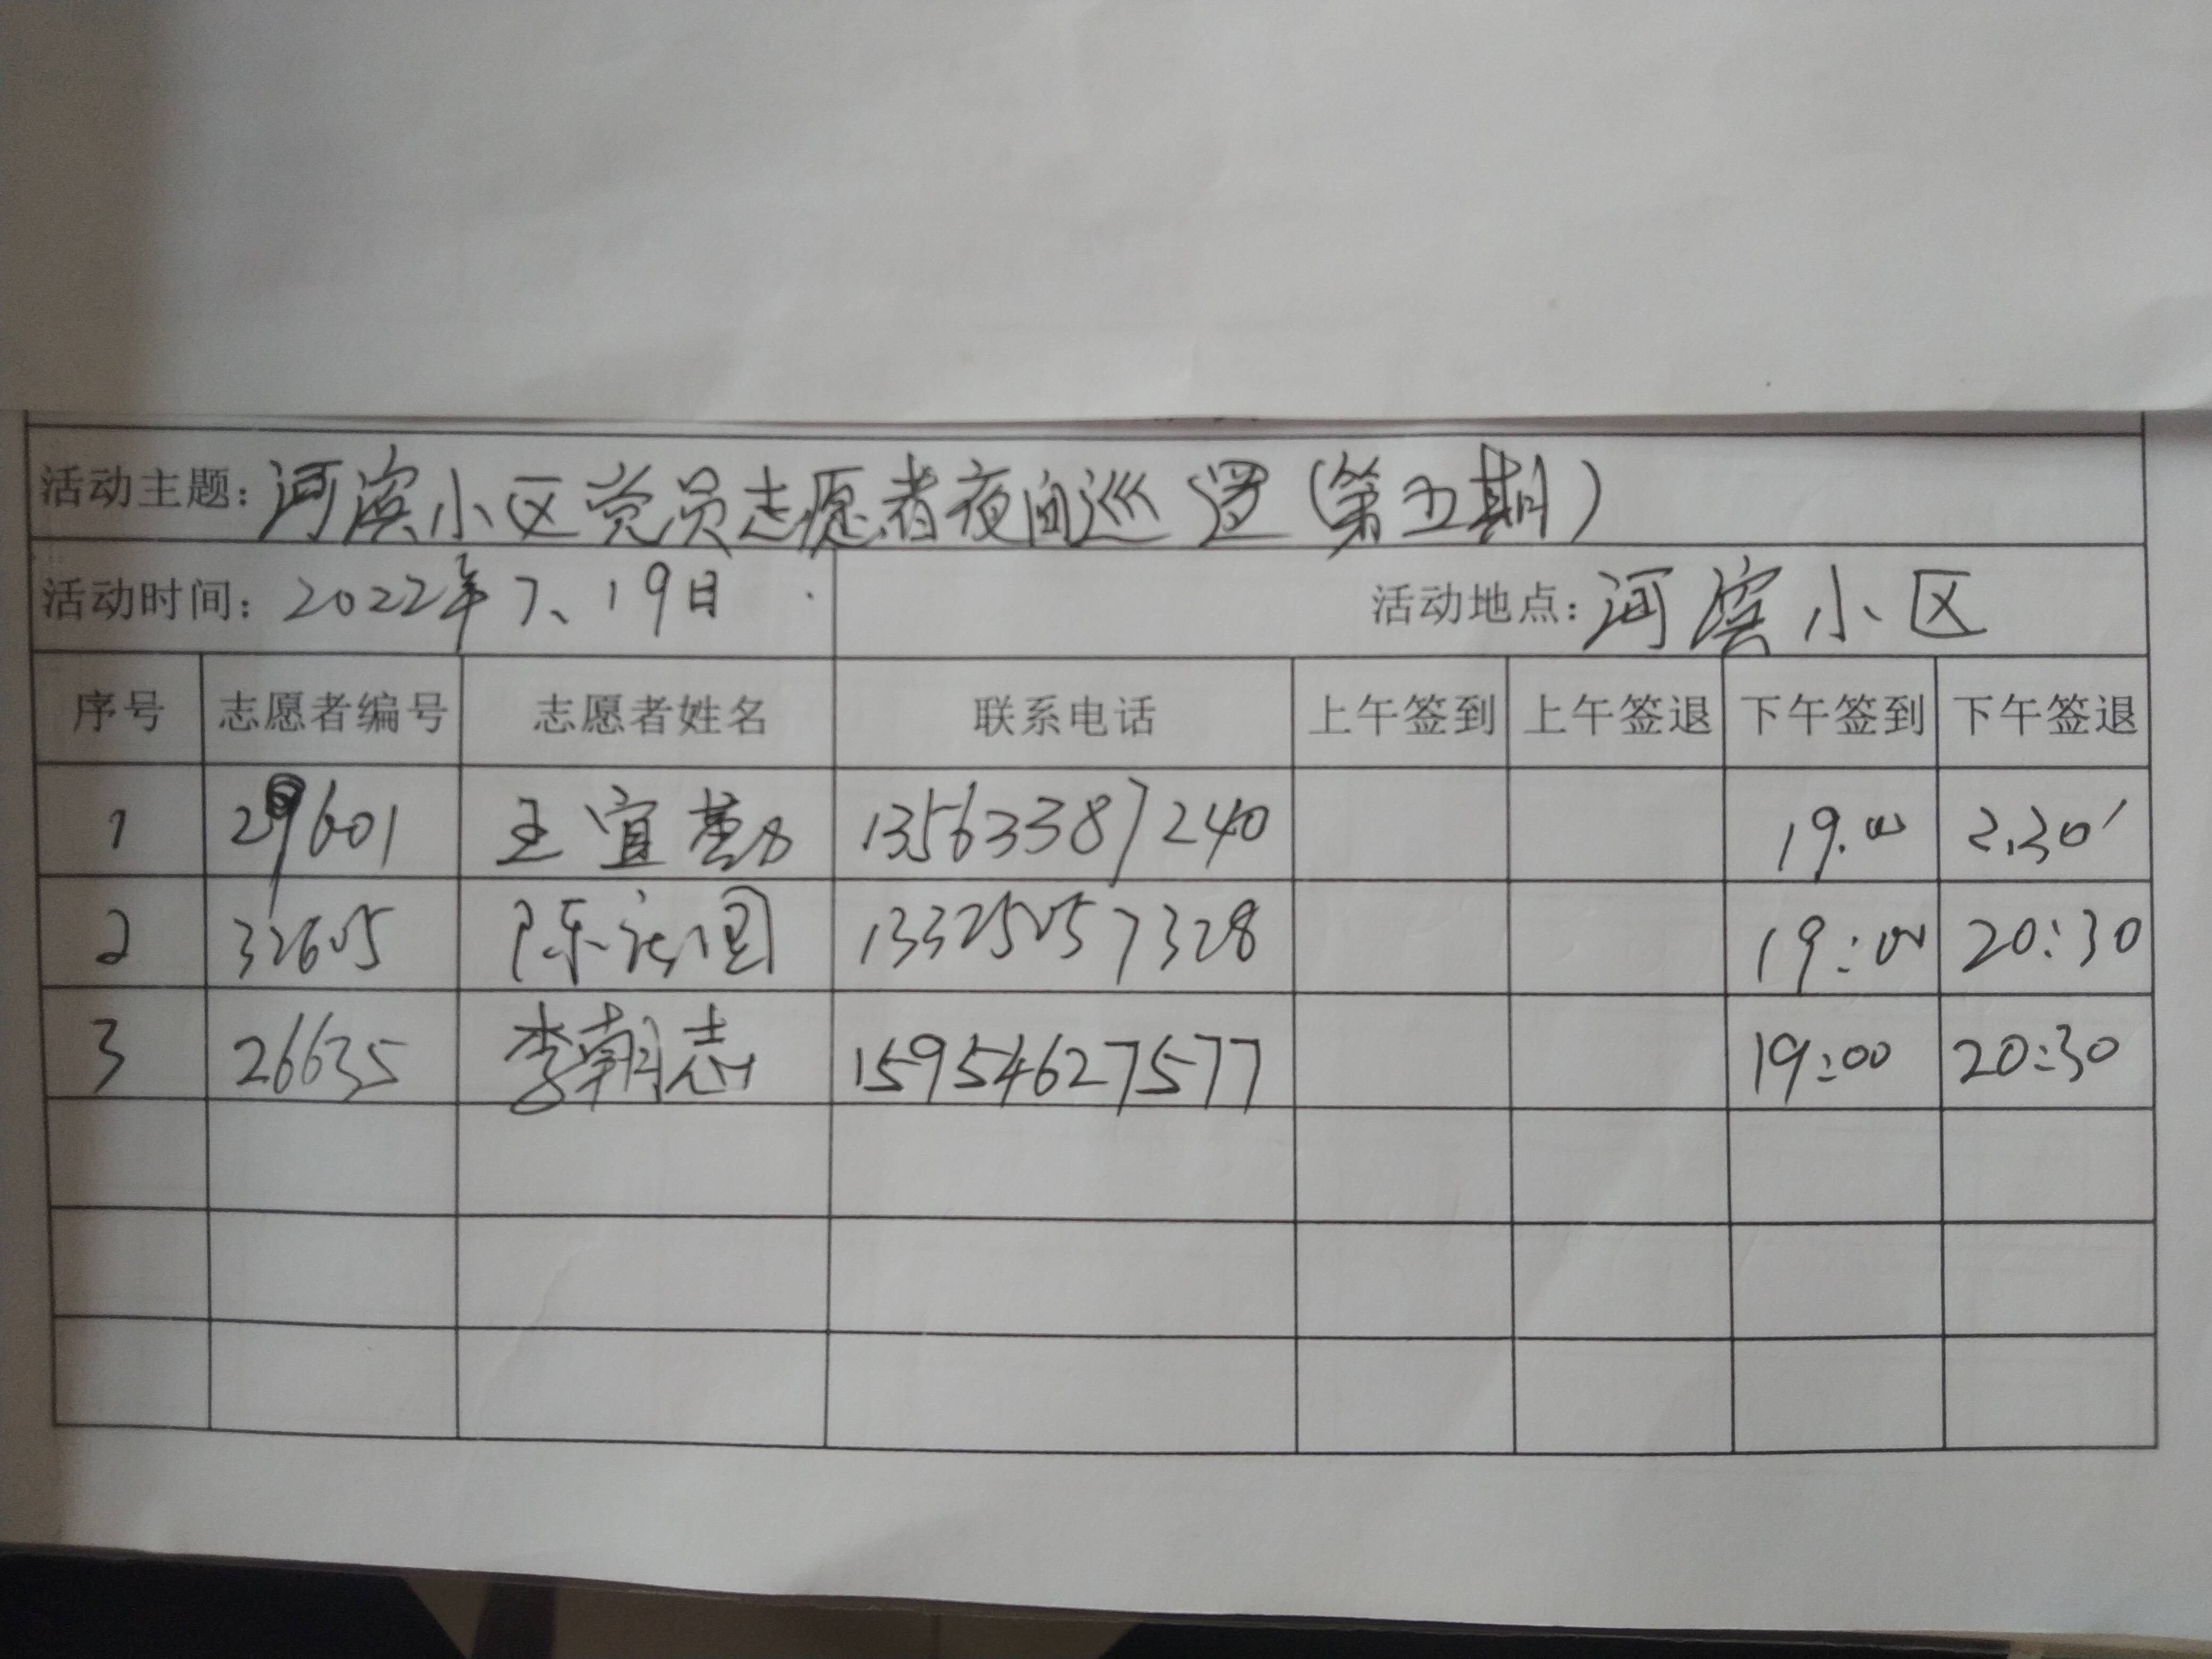 活动主题：河滨小区党员志愿者夜间巡逻（第五期）
活动时间：2022年7、19日 活动地点：河滨小区
序号 志愿者编号 志愿者姓名 联系电话 上午签到 上午签退 下午签到 下午签退
1 29601 王宜勤 13563387240 19.00 2.30'
2 32605 陈 国 13325057328 19:00 20:30
3 26635 李朝志 15954627577 19:00 20:30